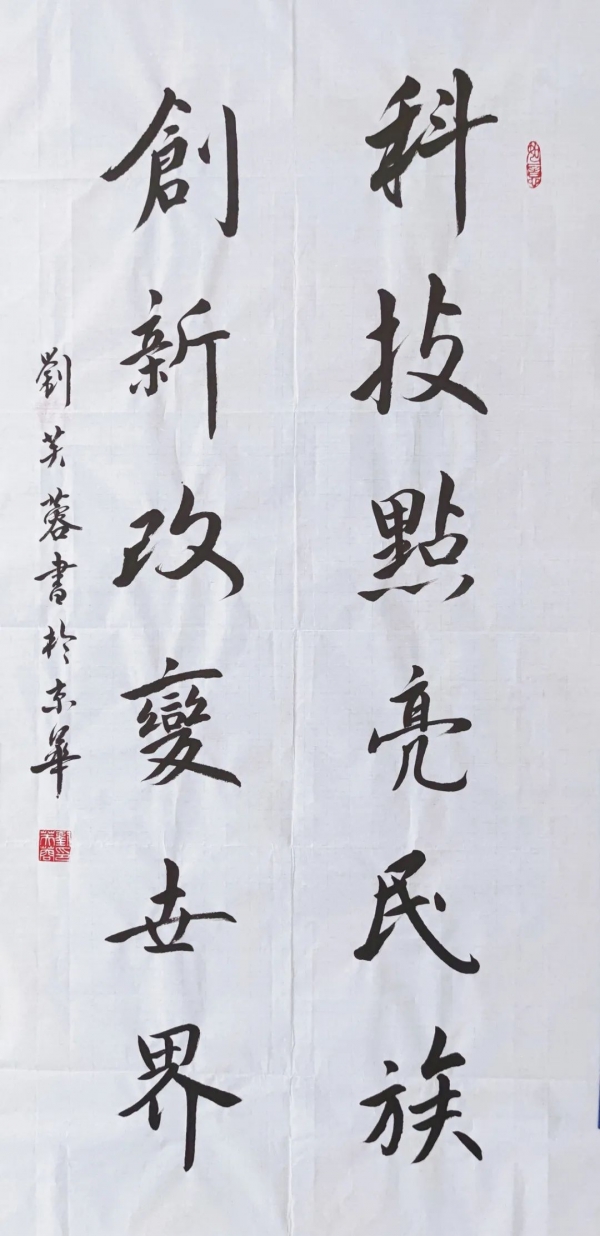 科技點亮民族
創新改變世界
劉芙蓉書於京華